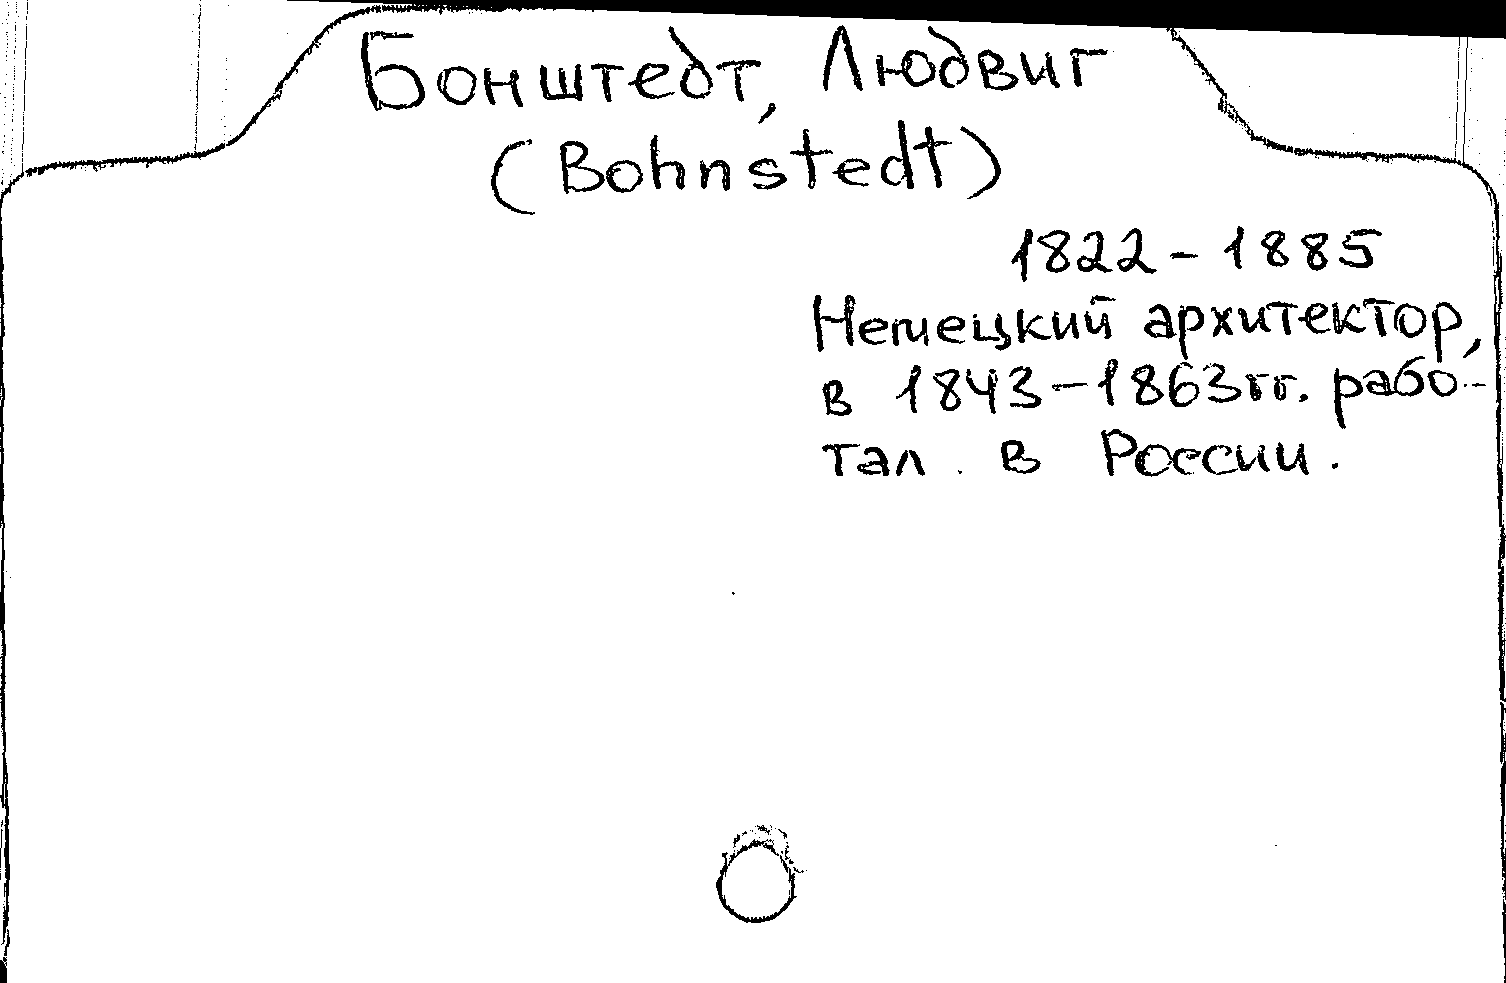 Бонштедт, Людвиг
(Bohnstedt)
1822-1885
Немецкий архитектор,
в 1843-1863гг. рабо-
тал в России.